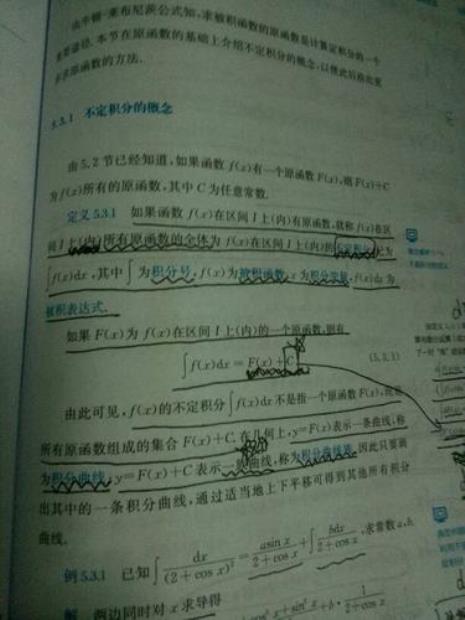 由牛顿-莱布尼茨公式知,求被积函数的原函数是计算定积分的一个
重要途径.本节在原函数的基础上介绍不定积分的概念,以便此后给出更
多求原函数的方法.
5.3.1 不定积分的概念
由5.2节已经知道,如果函数f(x)有一个原函数F(x),则F(x)+C
为f(x)所有的原函数,其中C为任意常数.
定义5.3.1 如果函数f(x)在区间I上(内)有原函数,就称f(x)在区
间I上(内)所有原函数的全体为f(x)在区间I上(内)的不定积分,记为
∫f(x)dx,其中∫为积分号,f(x)为被积函数,x为积分变量,f(x)dx为
被积表达式.
如果F(x)为f(x)在区间I上(内)的一个原函数,则有
∫f(x)dx = F(x)+C (5.3.1)
由此可见,f(x)的不定积分∫f(x)dx不是指一个原函数F(x),
所有原函数组成的集合F(x)+C.在几何上,y=F(x)表示一条曲线,称
为积分曲线,y=F(x)+C表示一族曲线,称为积分曲线族.因此只要画
出其中的一条积分曲线,通过适当地上下平移可得到其他所有积分
曲线.
例5.3.1 已知∫dx/(2+cos x)² = asin x/(2+cos x) + ∫bdx/(2+cos x),求常数a,b.
解 两边同时对x求导得